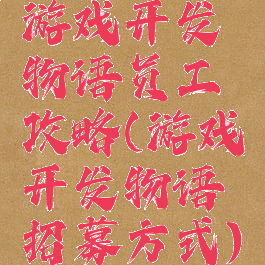 游戏开发
物语员工
攻略(游戏
开发物语
招募方式)